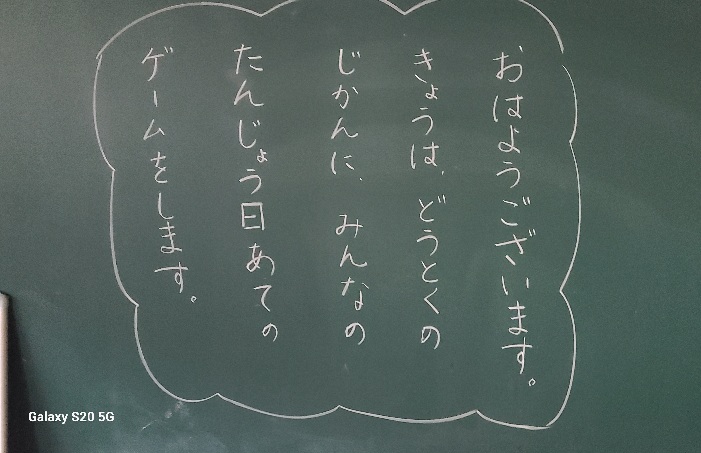 おはようございます。
きょうは、どうとくの
じかんに、みんなの
たんじょう日あての
ゲームをします。
Galaxy S20 5G